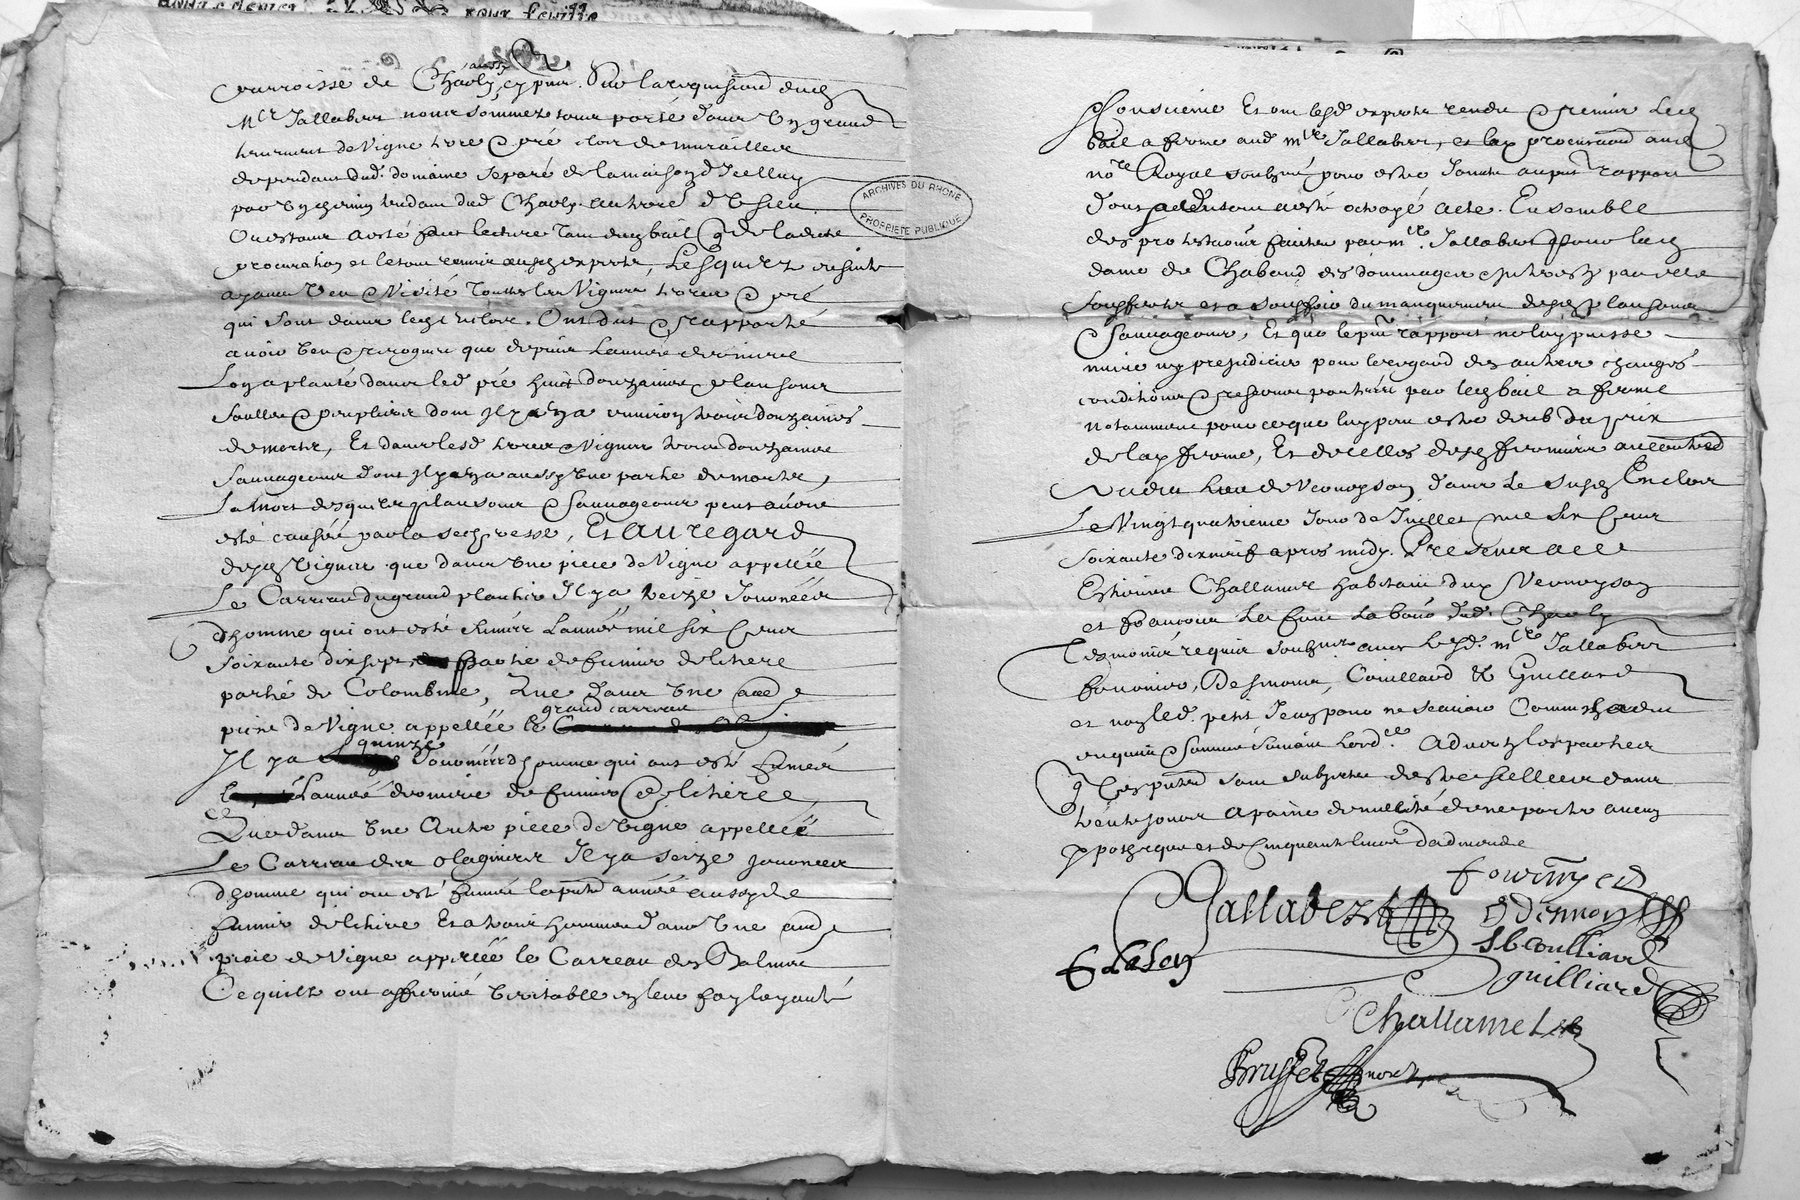 parroisse de Charly, aussy cy pnt. Sur la requisition dud
Mre Jallabert nous sommes transporté dans un grand
tenement de vigne terre & pré clos de murailles
dependant dud. domaine separé de la maison d'icelluy
par un chemin tendant dud Charly au
Ou estant a esté fait lecture tant dud bail q de ladite
procuration et le tout remis ausd expertz, Lesquelz ensuite
ayant veu & visité touttes les vignes terres & pré
qui sont dans led enclos. Ont dit & rapporté
avoir veu & recogneu que depuis l'année derniere
Lon a planté dans led pré huict douzaines plansons
saulles & peupliers dont Il y en a environ trois douzaines
de mortz, Et dans lesd terres & vignes trois douzaines
sauvageons dont Il y en a aussy une partie de mortz,
La mort desquelz plansons & sauvageons peut avoir
esté causée par la secheresse, Et au regard
desd vignes que dans une piece de vigne appellée
Le Carreau du grand plantier Il y a treize Journées
d'homme qui ont esté fumées L'année mil six cent
soixante dix sept, partie de fumier de litiere
partie de Colombine, Que dans une autre
piece de vigne appellée le grand carreau
Il y a quinze Journées d'homme qui ont esté fumées
L'année derniere de fumier de litiere,
Que dans une Autre piece de vigne appellée
Le Carreau des Il y a seize journées
d'homme qui ont esté fumées la pnte année aussy de
fumier de litiere Et a trois hommes dans une autre
piece de vigne appellée le Carreau des Balmes
Ce quilz ont affirmé veritable en leur foy loyauté
ARCHIVES DU RHONE
PROPRIETE PUBLIQUE
& Consciene Et ont lesd expertz rendu & remis Led
bail a ferme aud Mre Jallabert, et lad procuration aud
nore Royal soubzné pour estre Jointe au pnt rapport
Dont a esté octroyé acte. Ensemble
des protestations faites par mre. Jallabert pour lad
dame de Chaband des dommages & Interestz par elle
soufferts et a souffrir du manquement desd plansons
& sauvageons, Et que le pnt rapport ne luy puisse
nuire ny prejudicier pour le regard des autres charges
conditions & reserves portées par led bail a ferme
notamment pour ce que luy peut estre deub du prix
de lad ferme, Et de celles desd fermiers au contraire
lieu de Vernaison dans Le susd Encloz
Le vingt quatrieme Jour de Juillet mil six cent
soixante dix neuf apres midy. Presence de
Estienne Challamel habitant dud Vernaison
et François La font Labour dud. Charly
Tesmoins requis soubznes avec Led. mre Jallabert
fournier, Desmoins, Couillard & Guillard
et non led. petit Jean pour ne scavoir Comme a dit
enquis & sommé suivant lord.ce Adverty les parties
q Les pntes sont subjettes destre scellees dans
trente jours a paine de nullité de ne porter aucun
ypothecque et de Cinquante livres d'admende
fournyer
Jallabert
Desmoy
Couilliard
F Lafon
guilliard
Challamel
Brusset nore